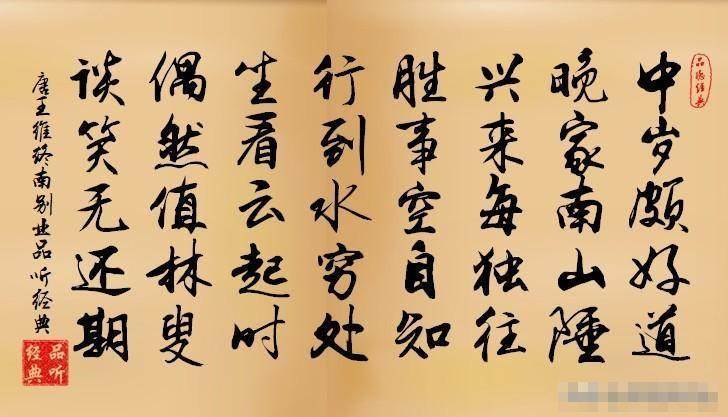 品听经典
中岁颇好道
晚家南山陲
兴来每独往
胜事空自知
行到水穷处
坐看云起时
偶然值林叟
谈笑无还期
唐王维终南别业品听经典
品听经典